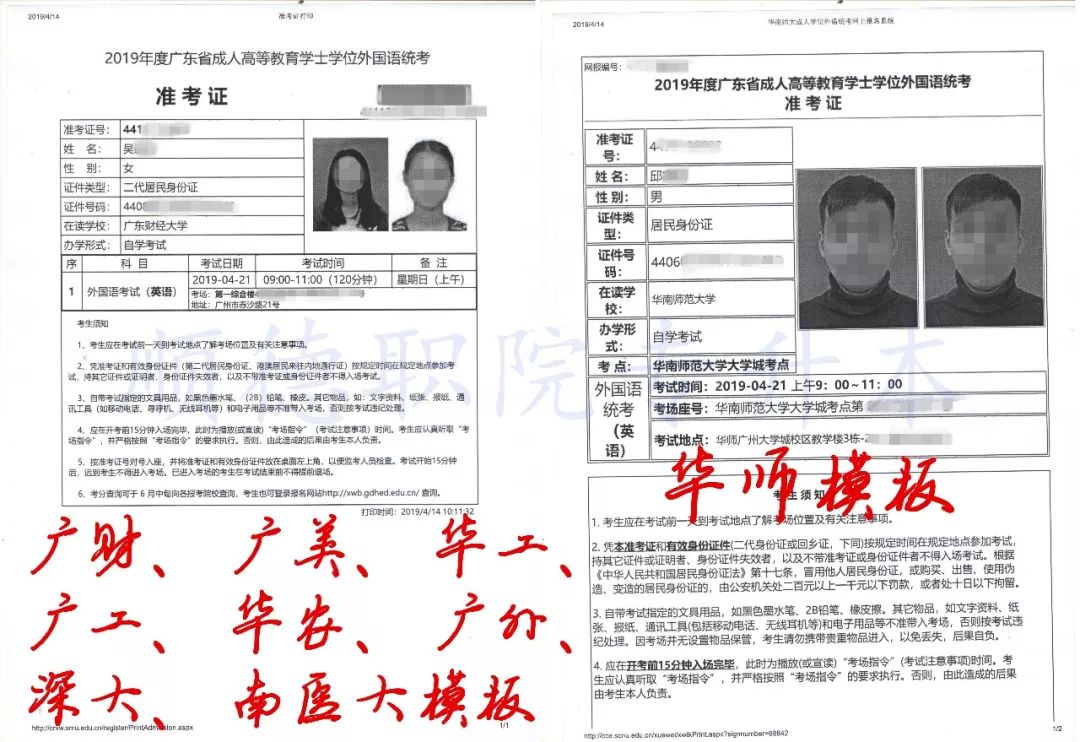 2019/4/14
准考证打印
2019年度广东省成人高等教育学士学位外国语统考
准考证
准考证号： 441
姓 名： 吴
性 别： 女
证件类型： 二代居民身份证
证件号码： 4408
在读学校： 广东财经大学
办学形式： 自学考试
序 科 目 考试日期 考试时间 备 注
1 外国语考试（英语） 2019-04-21 09:00-11:00（120分钟） 星期日（上午）
考场：第一综合楼
地址：广州市赤沙路21号
考生须知
1、考生应在考试前一天到考试地点了解考场位置及有关注意事项。
2、凭准考证和有效身份证件（第二代居民身份证、港澳居民来往内地通行证）按规定时间在规定地点参加考
试，持其它证件或证明者、身份证件失效者，以及不带准考证或身份证件者不得入场考试。
3、自带考试指定的文具用品，如黑色墨水笔、（2B）铅笔、橡皮。其它物品，如：文字资料、纸张、报纸、通
讯工具（如移动电话、寻呼机、无线耳机等）和电子用品等不准带入考场，否则按考试违纪处理。
4、应在开考前15分钟入场完毕，此时为播放(或宣读）“考场指令”（考试注意事项）时间。考生应认真听取“考
场指令”，并严格按照“考场指令”的要求执行。否则，由此造成的后果由考生本人负责。
5、按准考证号对号入座，并将准考证和有效身份证件放在桌面左上角，以便监考人员检查。考试开始15分钟
后，迟到考生不得进入考场。已进入考场的考生在考试结束前不得提前退场。
6、考分查询可于 6 月中旬向各报考院校查询，考生也可登录报名网站http://xwb.gdhed.edu.cn/ 查询。
打印时间：2019/4/14 10:11:32
广财、 广美、 华工、
广工、 华农、 广外、
深大、 南医大模板
http://crxw.scnu.edu.cn/register/PrintAdmission.aspx
1/1
2019/4/14
华南师大成人学位外语统考网上报名系统
网报编号：
2019年度广东省成人高等教育学士学位外国语统考
准考证
准考证号： 44
姓 名： 邱
性 别： 男
证件类型： 居民身份证
证件号码： 44060
在读学校： 华南师范大学
办学形式： 自学考试
考 点： 华南师范大学大学城考点
外国语统考（英语）
考试时间：2019-04-21 上午9：00～11：00
考场座号：华南师范大学大学城考点第
考试地点：华师广州大学城校区教学楼3栋-2
华师模板
考生须知
1. 考生应在考试前一天到考试地点了解考场位置及有关注意事项。
2. 凭本准考证和有效身份证件(二代身份证或回乡证，下同)按规定时间在规定地点参加考试，
持其它证件或证明者、身份证件失效者，以及不带准考证或身份证件者不得入场考试。根据
《中华人民共和国居民身份证法》第十七条，冒用他人居民身份证，或购买、出售、使用伪
造、变造的居民身份证的，由公安机关处二百元以上一千元以下罚款，或者处十日以下拘留。
3. 自带考试指定的文具用品，如黑色墨水笔、2B铅笔、橡皮擦。其它物品，如文字资料、纸
张、报纸、通讯工具(包括移动电话、无线耳机等)和电子用品等不准带入考场，否则按考试违
纪处理。因考场并无设置物品保管，考生请勿携带贵重物品进入，以免丢失，后果自负。
4. 应在开考前15分钟入场完毕，此时为播放(或宣读）“考场指令”(考试注意事项)时间。考
生应认真听取“考场指令”，并严格按照“考场指令”的要求执行。否则，由此造成的后果
由考生本人负责。
http://cce.scnu.edu.cn/xuewei/xwtkPrint.aspx?signnumber=68842
1/2
顺德职院专升本